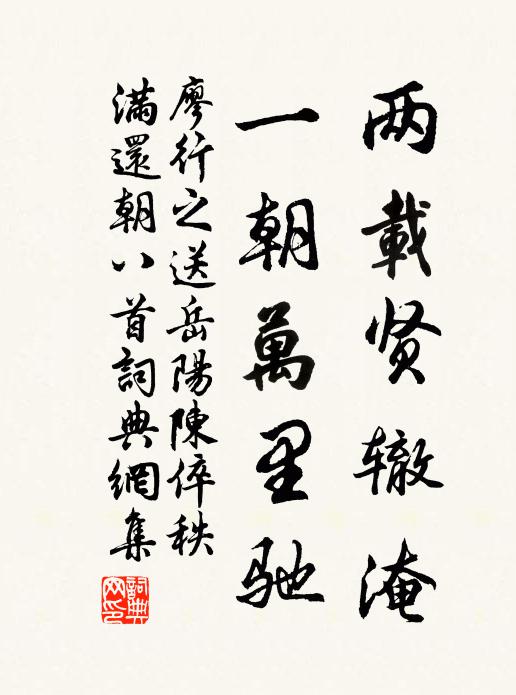 两載贤辙淹
一朝萬里驰
廖行之送岳陽陳倅秩
滿還朝八首詞典網集
詞典
网印